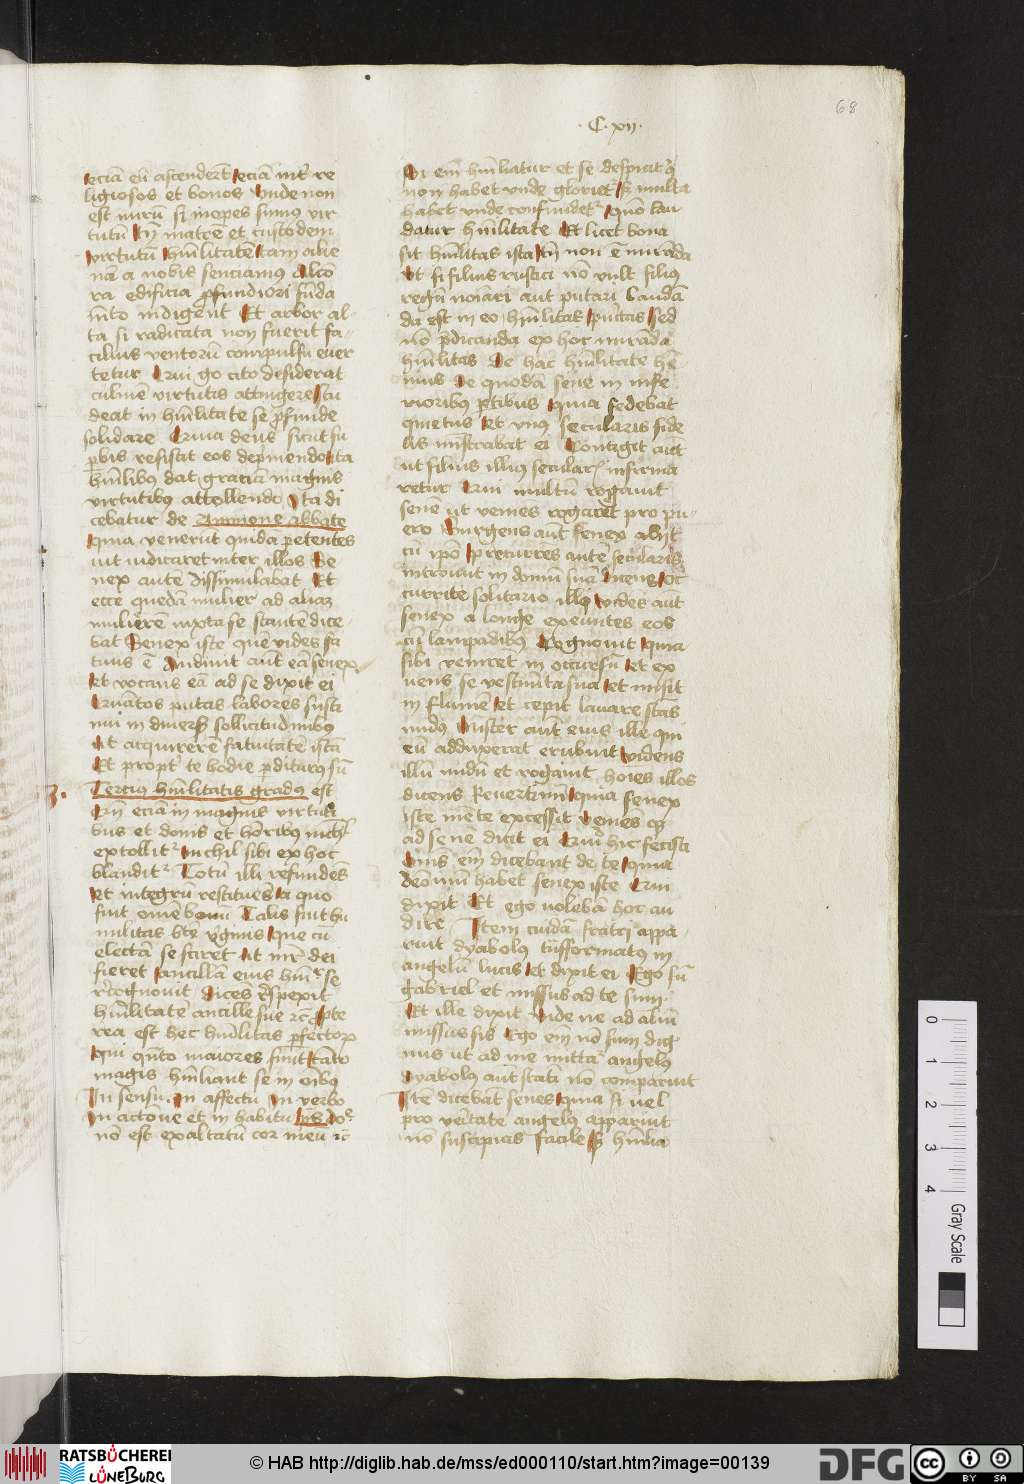 68
·C·xij·
eciā eū ascenderēt eciā int' re
ligiosos et bonos Unde non
est mirū si inopes sumus vir
tutū Cū matrē et custodem
virtutū humilitatē tam alie
nā a nobis senciamus Alcio
ra edificia profundiori fūda
mēto indigent Et arbor al-
ta si radicata non fuerit fa-
cilius ventorū compulsu ever
tetur Qui go cito desiderat
culmē virtutis attingere stu
deat in hūilitate se profunde
solidare Quia deus sicut su
perbis resistit eos depmendo ita
hūilibus dat graciā magnis
virtutibus attollendo Ita di
cebatur de Ammone abbate
quia venerūt quidā petentes
ut iudicaret inter illos Se
nex autē dissimulabat Et
ecce quedā mulier ad aliaz
mulierē iuxta se stantē dice-
bat Senex iste quē vides fa
tuus ē Audivit aūt eā senex
et vocans eā ad se dixit ei
Quātos putas labores susti
nui in diversis sollicitudinibus
Ut acquirerē fatuitatē istā
Et propt' te hodie perditurus sū
3.
Tercius hūilitatis gradus est
Cū eciā in magnis virtuti
bus et donis et hōribus nichil
extollit' Nichil sibi ex hoc
blandit' Totū illi refundēs
et integrū restituēs a quo
fuit omē bonū Talis fuit hu
militas bte v'ginis que cū
electā se sciret Ut mr' dei
fieret ancillā eius hūil' se
recognovit Dicēs respexit
hūilitatē ancille sue rc̄ Propte
rea est hec hūilitas perfectorum
qui qūto maiores sūt tāto
magis hūiliant se in oībus
In sensu. In affectu In verbo
In actione et in habitu ps Do'
nō est exaltatū cor meū rc̄
Si enī hūiliatur et se despicit qui
non habet unde gloriet' Sed multa
habet unde confundet' quō lau
datur hūilitate Et licet bona
sit hūilitas ista tn̄ non ē mirāda
Ut si filius rustici nō vult filius
regū noīari aut putari Laudā
da est in eo hūilitas puritas sed
nō predicanda ex hoc mirāda
hūilitas De hac hūilitate hē
mus de quodā sene in infe
rioribus partibus quia sedebat
quietus et unus secularis fide
lis mīstrabat ei Contigit aūt
ut filius illius secularis infirma
retur Qui multū rogavit
senē ut veniēs rogaret pro pu-
ero Surgens aūt senex abijt
cū ipō Precurrēs ante secularis
introivit in domū suā Dicens
currite solitario illi Vides aūt
senex a longe exeuntes eos
cū lampadibus Cognovit quia
sibi venirēt in occursū et ex
uens se vestimēta sua et misit
in flumē et cepit lavare stās
nudus Mister aūt eius ille qui
eū adduxerat erubuit videns
illū nudū et rogavit hoīes illos
dicens Revertimī quia senex
iste mēte excessit Veniēs
ad senē dicit ei Quid hic fecisti
Oīs enī dicebant de te quia
demoniū habet senex iste Qui
dixit Et ego volebā hoc au
dire Item cuidā fratri appa-
ruit dyabolus trāsformatus in
angelū lucis et dixit ei Ego sū
gabriel et missus ad te sum·
Et ille dixit Vide ne ad aliū
missus sis Ego enī nō sum dig
nus ut ad me mittat' angelus
Dyabolus aūt statī nō comparuit
Iste dicebat senes quia si vel
pro veritate angelus apparuit
nō suscipias facile Sed hūilia
0
1
2
3
4
Gray Scale
RATSBÜCHEREI
LÜNEBURG
© HAB http://diglib.hab.de/mss/ed000110/start.htm?image=00139
DFG
cc
BY SA